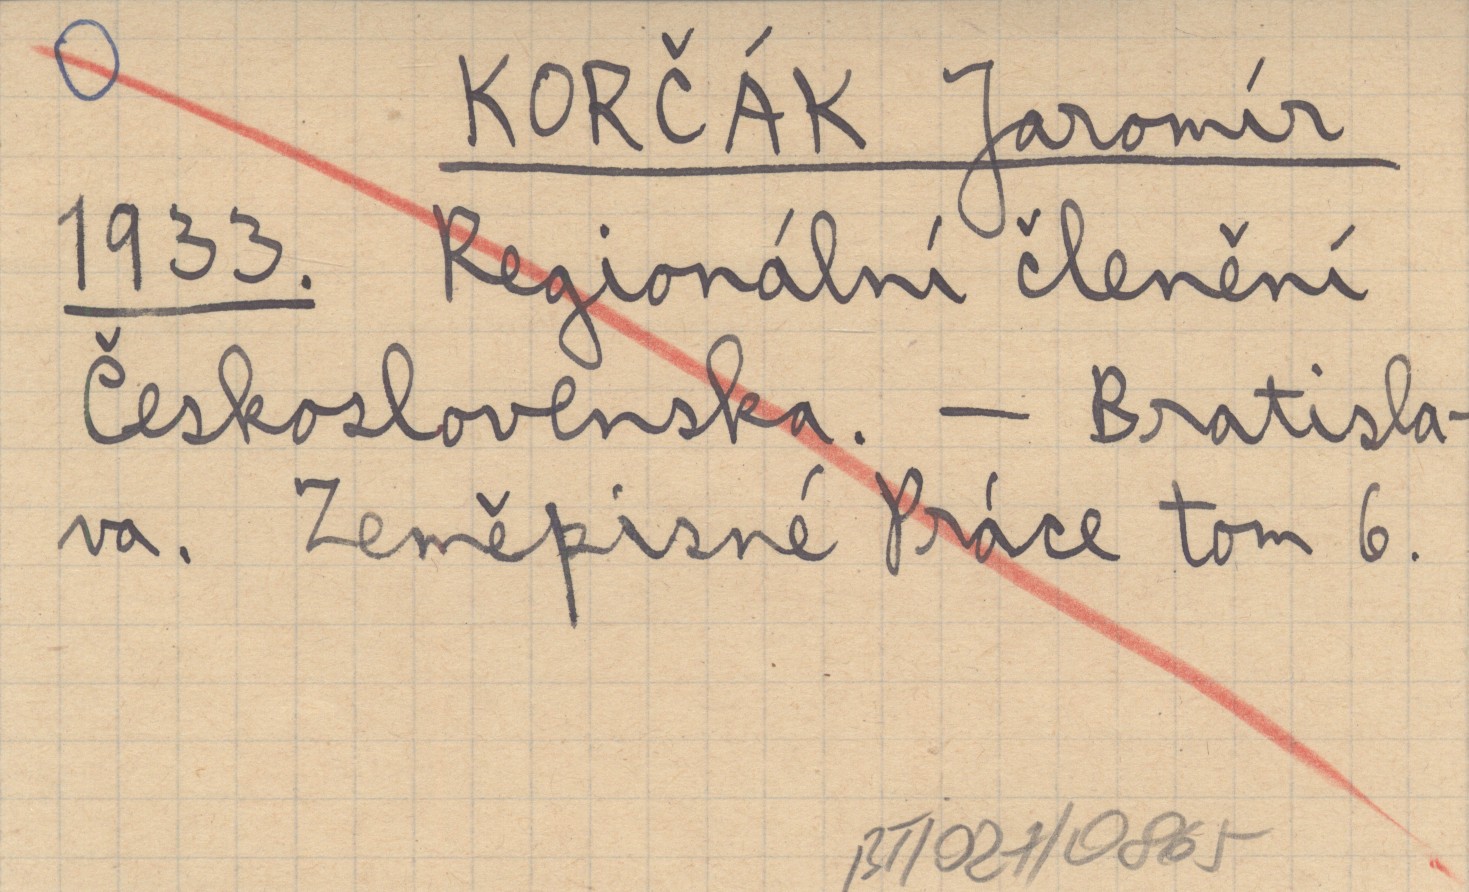 KORČÁK Jaromír
1933. Regionální členění
Československa. — Bratisla-
va. Zeměpisné Práce tom 6.
BT/027/0865